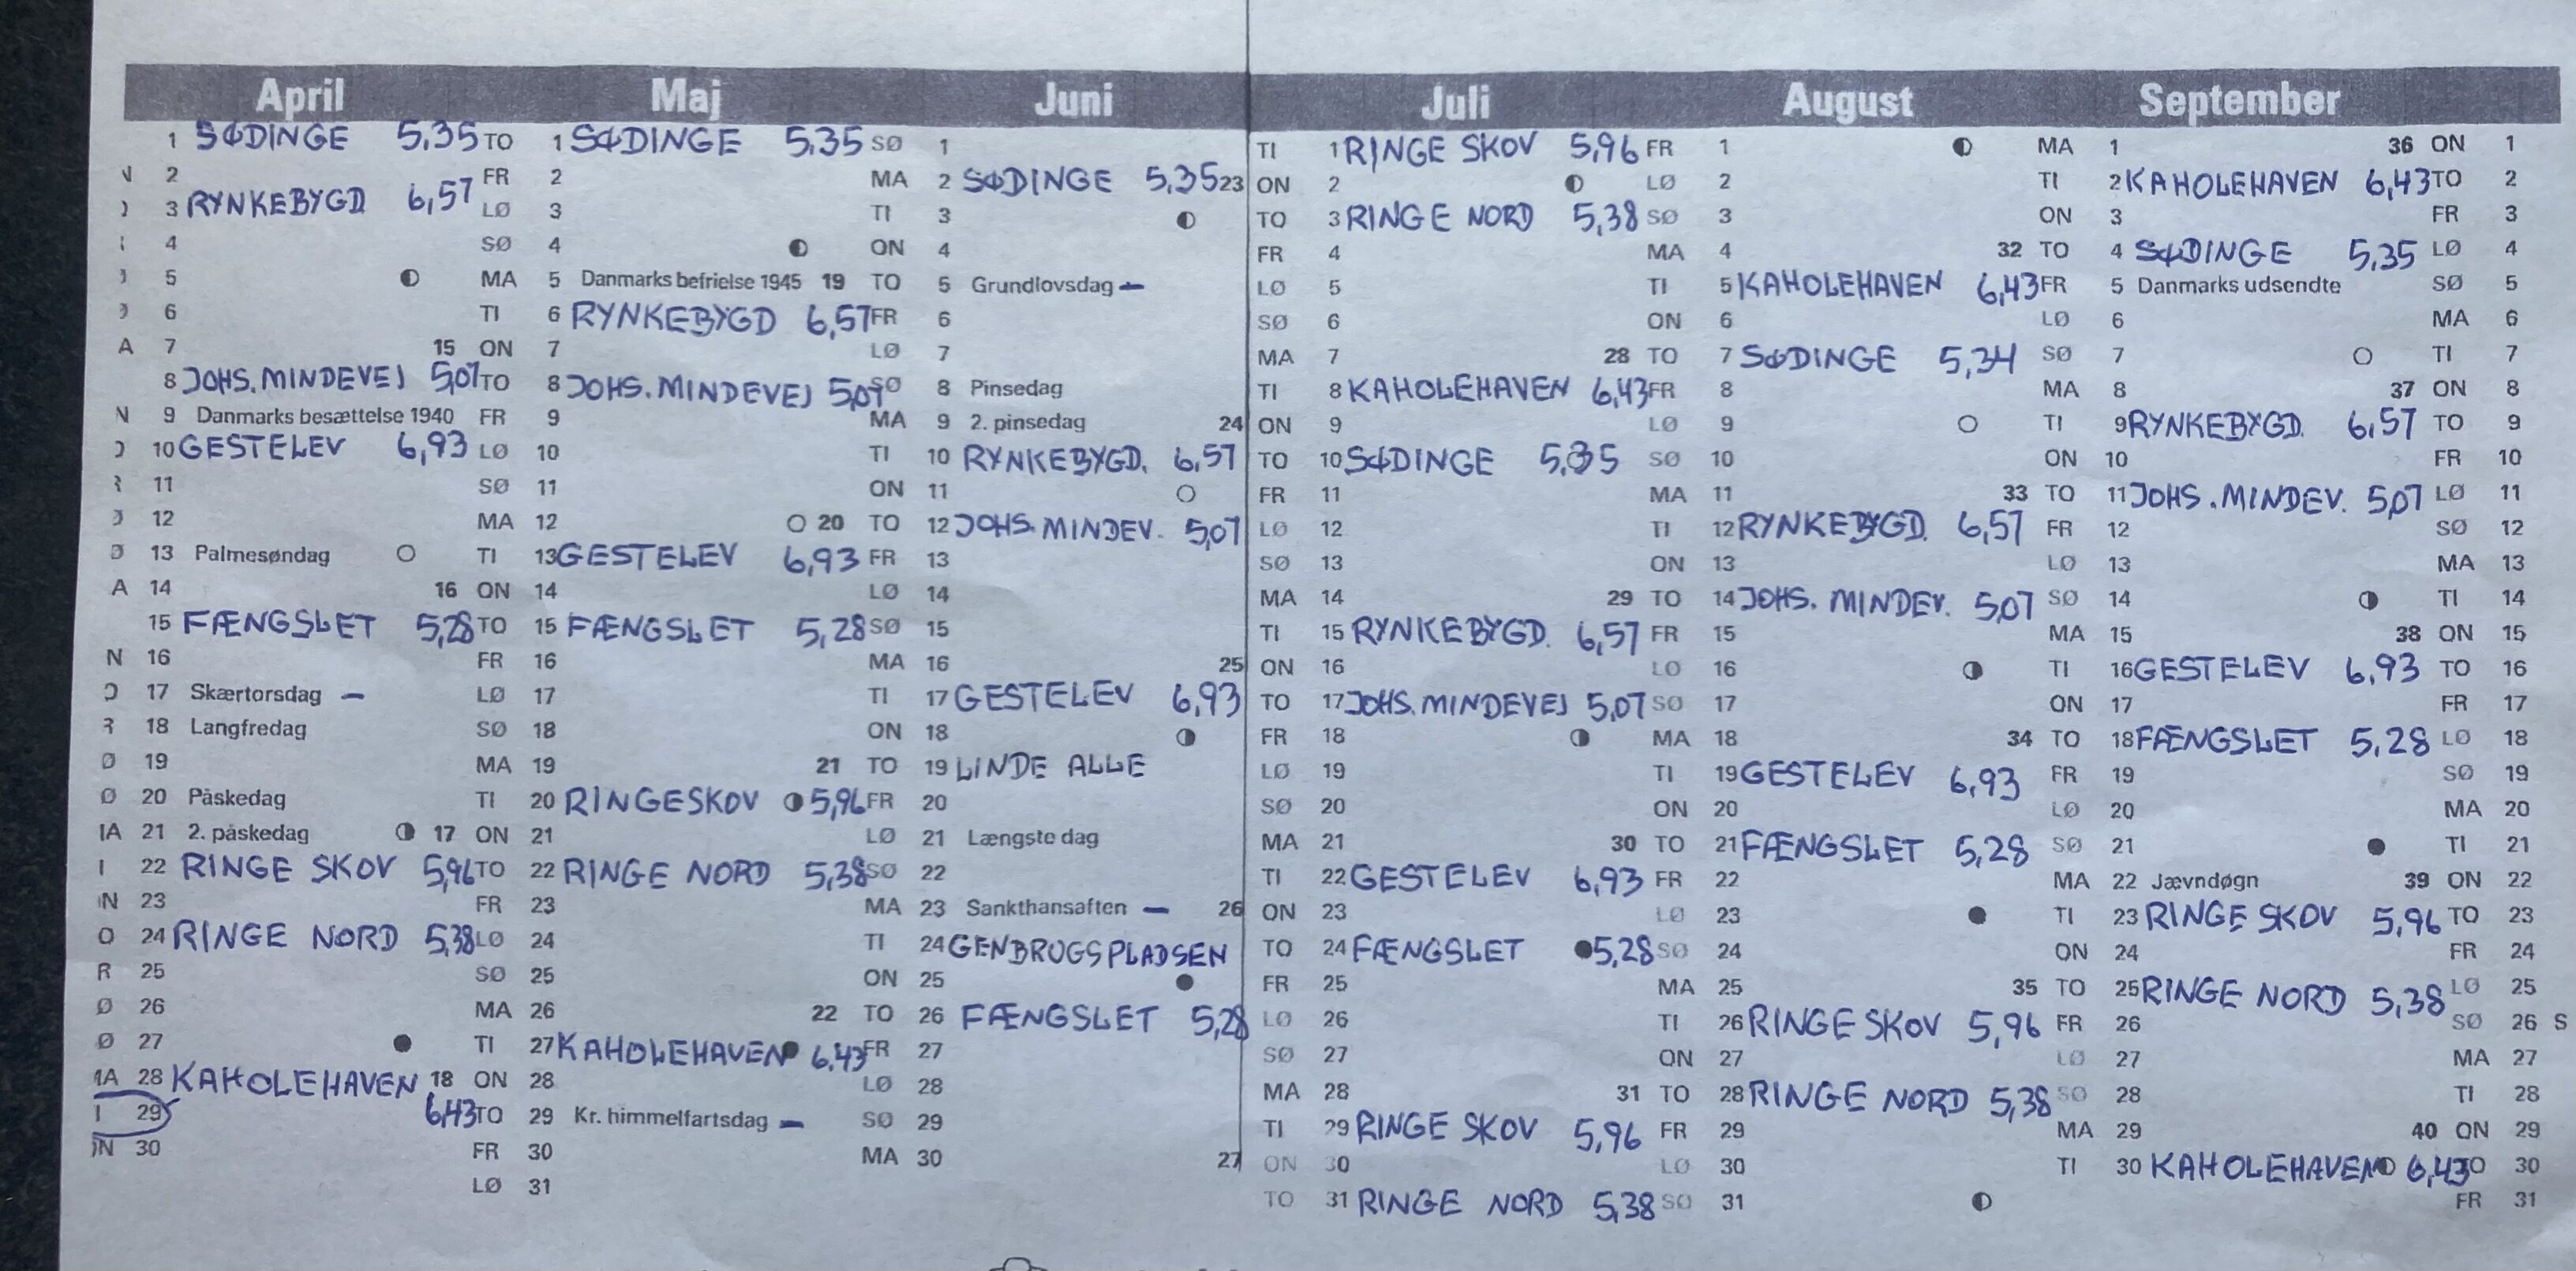 April
1 SØDINGE 5,35
2
3 RYNKEBYGD 6,57
4
5
6
A 7 15
8 JOHS. MINDEVEJ 5,07
N 9 Danmarks besættelse 1940
10 GESTELEV 6,93
11
12
Ø 13 Palmesøndag
A 14 16
15 FÆNGSLET 5,28
N 16
17 Skærtorsdag –
18 Langfredag
Ø 19
Ø 20 Påskedag
MA 21 2. påskedag 17
I 22 RINGE SKOV 5,96
N 23
O 24 RINGE NORD 5,38
R 25
Ø 26
Ø 27
MA 28 KAHOLEHAVEN 18
I 29 6,43
ON 30
Maj
TO 1 SØDINGE 5,35
FR 2
LØ 3
SØ 4
MA 5 Danmarks befrielse 1945 19
TI 6 RYNKEBYGD 6,57
ON 7
TO 8 JOHS. MINDEVEJ 5,07
FR 9
LØ 10
SØ 11
MA 12 20
TI 13 GESTELEV 6,93
ON 14
TO 15 FÆNGSLET 5,28
FR 16
LØ 17
SØ 18
MA 19 21
TI 20 RINGESKOV 5,96
ON 21
TO 22 RINGE NORD 5,38
FR 23
LØ 24
SØ 25
MA 26 22
TI 27 KAHOLEHAVEN 6,43
ON 28
TO 29 Kr. himmelfartsdag –
FR 30
LØ 31
Juni
SØ 1
MA 2 SØDINGE 5,35 23
TI 3
ON 4
TO 5 Grundlovsdag –
FR 6
LØ 7
SØ 8 Pinsedag
MA 9 2. pinsedag 24
TI 10 RYNKEBYGD. 6,57
ON 11
TO 12 JOHS. MINDEV. 5,07
FR 13
LØ 14
SØ 15
MA 16 25
TI 17 GESTELEV 6,93
ON 18
TO 19 LINDE ALLE
FR 20
LØ 21 Længste dag
SØ 22
MA 23 Sankthansaften – 26
TI 24 GENBRUGSPLADSEN
ON 25
TO 26 FÆNGSLET 5,28
FR 27
LØ 28
SØ 29
MA 30 27
Juli
TI 1 RINGE SKOV 5,96
ON 2
TO 3 RINGE NORD 5,38
FR 4
LØ 5
SØ 6
MA 7 28
TI 8 KAHOLEHAVEN 6,43
ON 9
TO 10 SØDINGE 5,35
FR 11
LØ 12
SØ 13
MA 14 29
TI 15 RYNKEBYGD. 6,57
ON 16
TO 17 JOHS. MINDEVEJ 5,07
FR 18
LØ 19
SØ 20
MA 21 30
TI 22 GESTELEV 6,93
ON 23
TO 24 FÆNGSLET 5,28
FR 25
LØ 26
SØ 27
MA 28 31
TI 29 RINGE SKOV 5,96
ON 30
TO 31 RINGE NORD 5,38
August
FR 1
LØ 2
SØ 3
MA 4 32
TI 5 KAHOLEHAVEN 6,43
ON 6
TO 7 SØDINGE 5,34
FR 8
LØ 9
SØ 10
MA 11 33
TI 12 RYNKEBYGD. 6,57
ON 13
TO 14 JOHS. MINDEV. 5,07
FR 15
LØ 16
SØ 17
MA 18 34
TI 19 GESTELEV 6,93
ON 20
TO 21 FÆNGSLET 5,28
FR 22
LØ 23
SØ 24
MA 25 35
TI 26 RINGE SKOV 5,96
ON 27
TO 28 RINGE NORD 5,38
FR 29
LØ 30
SØ 31
September
MA 1 36
TI 2 KAHOLEHAVEN 6,43
ON 3
TO 4 SØDINGE 5,35
FR 5 Danmarks udsendte
LØ 6
SØ 7
MA 8 37
TI 9 RYNKEBYGD. 6,57
ON 10
TO 11 JOHS. MINDEV. 5,07
FR 12
LØ 13
SØ 14
MA 15 38
TI 16 GESTELEV 6,93
ON 17
TO 18 FÆNGSLET 5,28
FR 19
LØ 20
SØ 21
MA 22 Jævndøgn 39
TI 23 RINGE SKOV 5,96
ON 24
TO 25 RINGE NORD 5,38
FR 26
LØ 27
SØ 28
MA 29 40
TI 30 KAHOLEHAVEN 6,43
ON 1
TO 2
FR 3
LØ 4
SØ 5
MA 6
TI 7
ON 8
TO 9
FR 10
LØ 11
SØ 12
MA 13
TI 14
ON 15
TO 16
FR 17
LØ 18
SØ 19
MA 20
TI 21
ON 22
TO 23
FR 24
LØ 25
SØ 26 S
MA 27
TI 28
ON 29
TO 30
FR 31